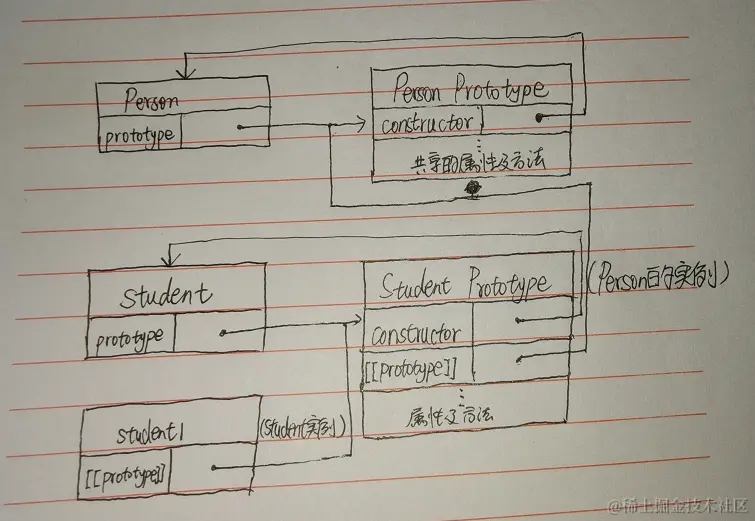 Person
prototype
Person Prototype
constructor
共享的属性及方法
Student
prototype
Student Prototype
(Person的实例)
constructor
[[prototype]]
属性及方法
student1
(student实例)
[[prototype]]
@稀土掘金技术社区